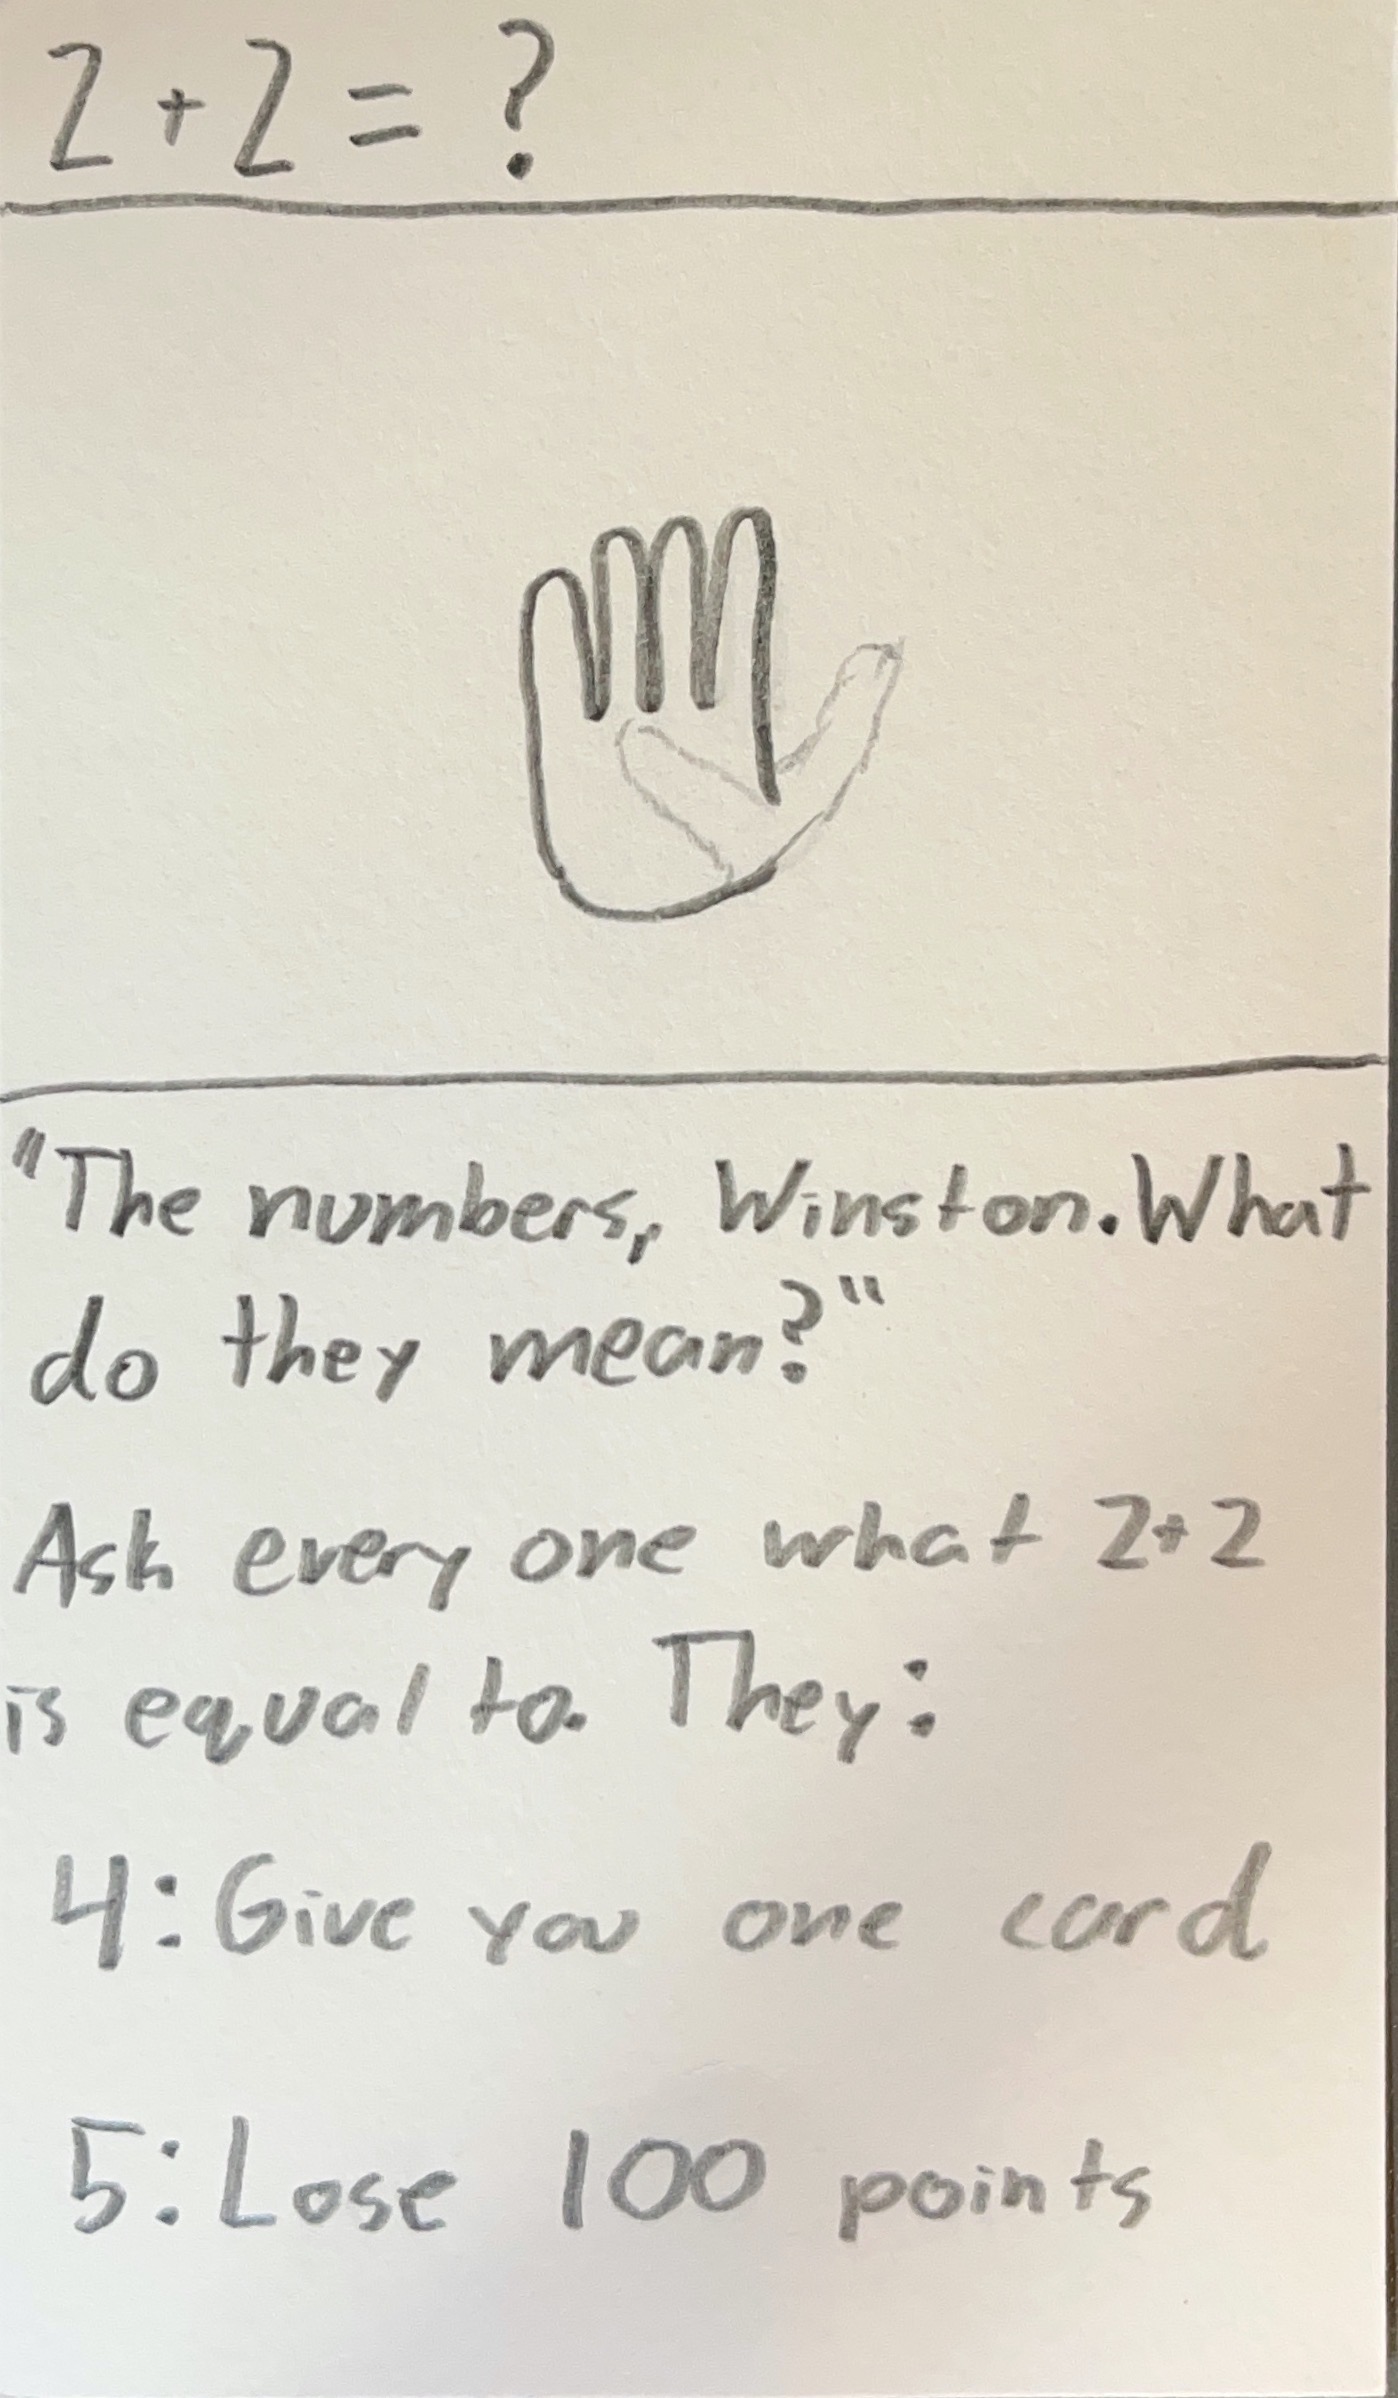 2+2=?
"The numbers, Winston. What
do they mean?"
Ask every one what 2+2
is equal to. They:
4: Give you one card
5: Lose 100 points